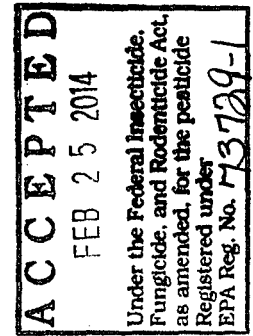 ACCEPTED
FEB 25 2014
Under the Federal Insecticide,
Fungicide, and Rodenticide Act,
as amended, for the pesticide
Registered under
EPA Reg. No. 73729-1